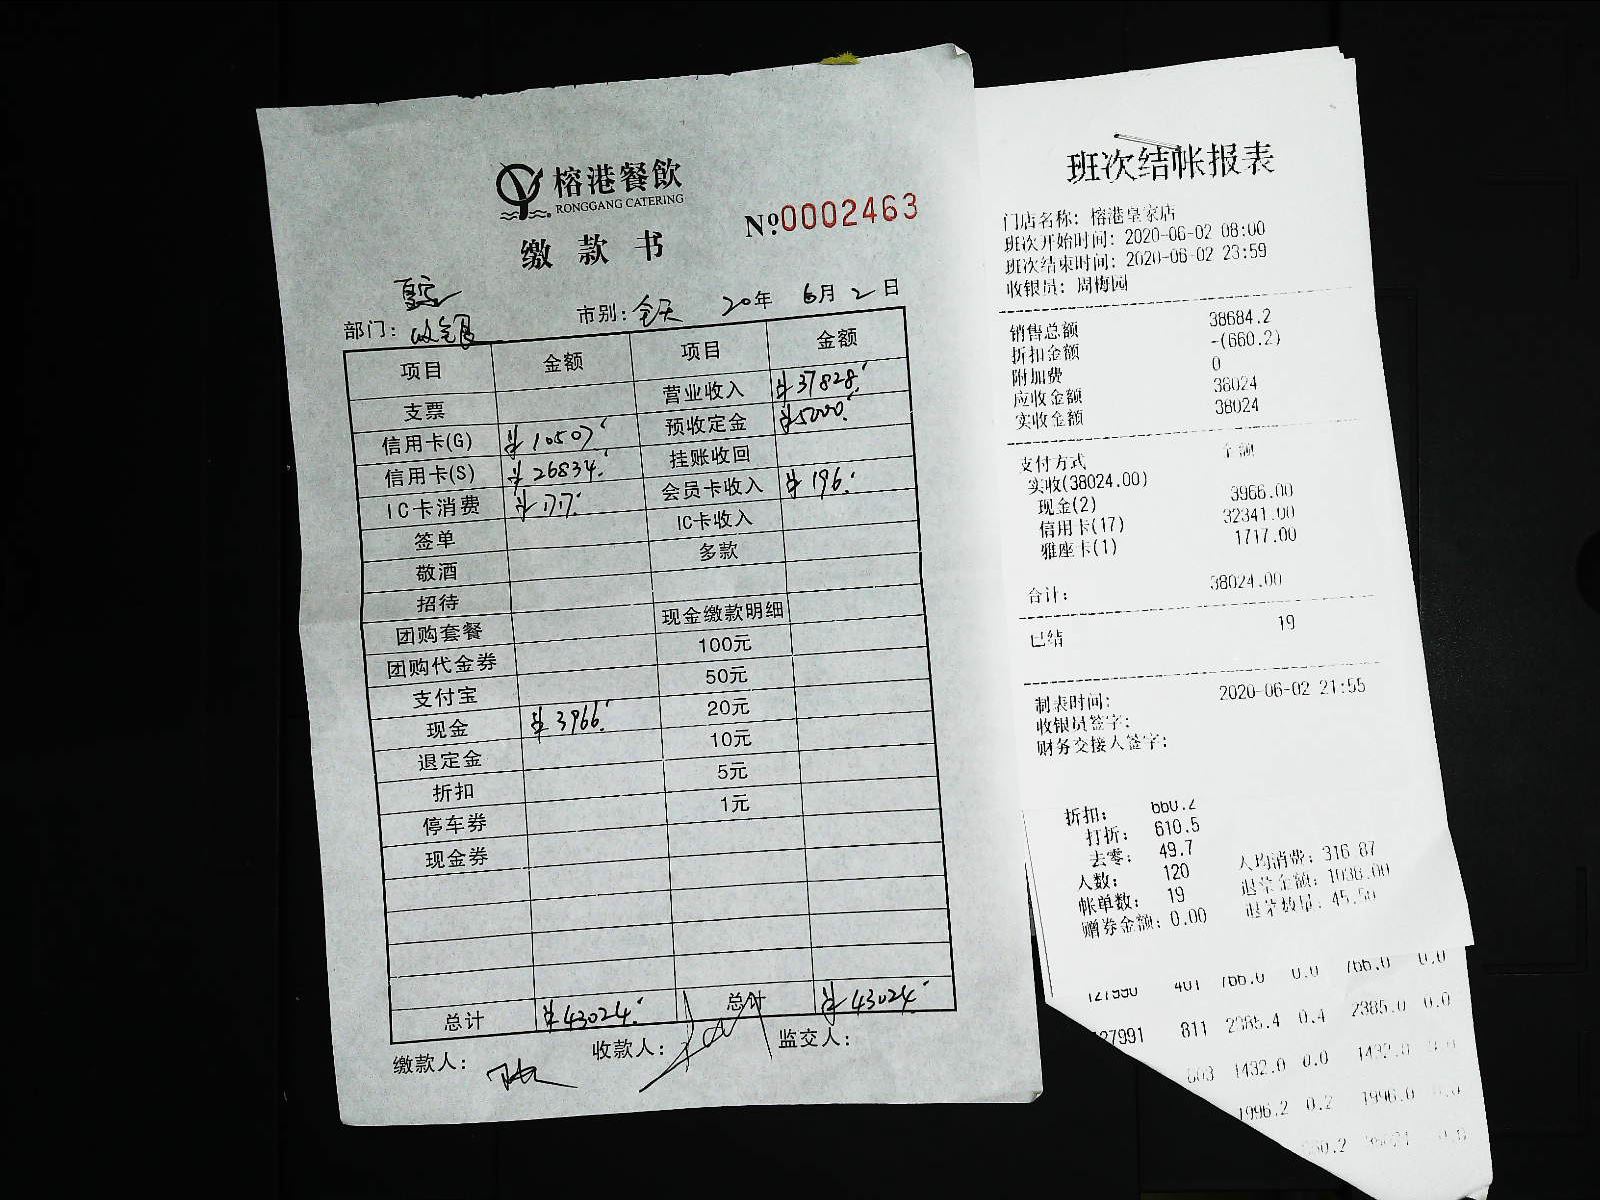 榕港餐飲
RONGGANG CATERING
№0002463
缴款书
部门: 收银
市别: 全天 20年 6月 2日
项目 金额 项目 金额
支票 营业收入 ¥37828.
信用卡(G) ¥10507 预收定金 ¥5000.
信用卡(S) ¥26834. 挂账收回
IC卡消费 ¥1717. 会员卡收入 ¥196.
签单 IC卡收入
敬酒 多款
招待
团购套餐 现金缴款明细
团购代金券 100元
支付宝 50元
现金 ¥3966. 20元
退定金 10元
折扣 5元
停车券 1元
现金券
总计 ¥43024. 总计 ¥43024.
缴款人: 收款人: 监交人:
班次结帐报表
门店名称: 榕港皇家店
班次开始时间: 2020-06-02 08:00
班次结束时间: 2020-06-02 23:59
收银员: 周梅园
销售总额 38684.2
折扣金额 -(660.2)
附加费 0
应收金额 38024
实收金额 38024
支付方式 金额
实收(38024.00)
现金(2) 3966.00
信用卡(17) 32341.00
雅座卡(1) 1717.00
合计: 38024.00
已结 19
制表时间: 2020-06-02 21:55
收银员签字:
财务交接人签字:
折扣: 660.2
打折: 610.5
去零: 49.7
人数: 120 人均消费: 316.87
帐单数: 19 退菜金额: 1038.00
赠券金额: 0.00 退菜数量: 45.50
127990 401 766.0 0.0 766.0 0.0
27991 811 2385.4 0.4 2385.0 0.0
603 1432.0 0.0 1432.0 0.0
1996.2 0.2 1996.0 0.0